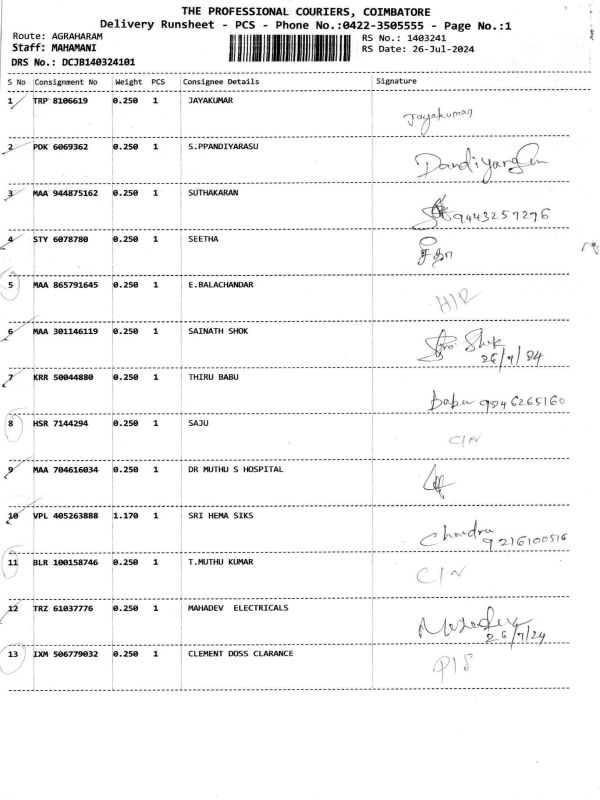 THE PROFESSIONAL COURIERS, COIMBATORE
Delivery Runsheet - PCS - Phone No.:0422-3505555 - Page No.:1
Route: AGRAHARAM RS No.: 1403241
Staff: MAHAMANI RS Date: 26-Jul-2024
DRS No.: DCJB140324101
S No Consignment No Weight PCS Consignee Details Signature
1 TRP 8106619 0.250 1 JAYAKUMAR Jayakumar
2 PDK 6069362 0.250 1 S.PPANDIYARASU
3 MAA 944875162 0.250 1 SUTHAKARAN 9443257276
4 STY 6078780 0.250 1 SEETHA
5 MAA 865791645 0.250 1 E.BALACHANDAR
6 MAA 301146119 0.250 1 SAINATH SHOK
7 KRR 50044880 0.250 1 THIRU BABU Babu 9846265160
8 HSR 7144294 0.250 1 SAJU C/N
9 MAA 704616034 0.250 1 DR MUTHU S HOSPITAL
10 VPL 405263888 1.170 1 SRI HEMA SIKS Chandra
9216100516
11 BLR 100158746 0.250 1 T.MUTHU KUMAR C/N
12 TRZ 61037776 0.250 1 MAHADEV ELECTRICALS
26/7/24
13 IXM 506779032 0.250 1 CLEMENT DOSS CLARANCE